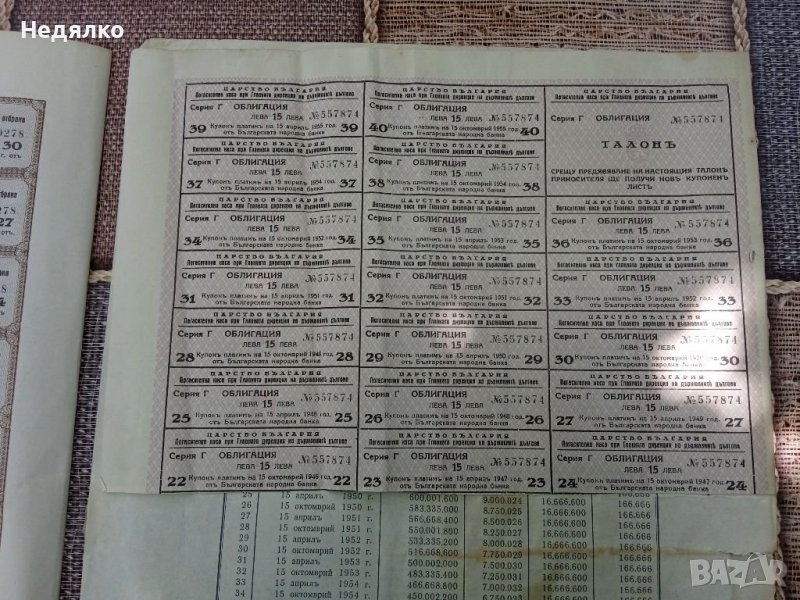 Недялко
отбрани
9278
30
с. отъ
278
27
отъ
ЦАРСТВО БЪЛГАРИЯ
Погасителна каса при Главната дирекция на държавнитѣ дългове
Серия Г ОБЛИГАЦИЯ №557874
ЛЕВА 15 ЛЕВА
39 Купонъ платимъ на 15 априлъ 1955 год. 39
отъ Българската народна банка
ЦАРСТВО БЪЛГАРИЯ
Погасителна каса при Главната дирекция на държавнитѣ дългове
Серия Г ОБЛИГАЦИЯ №557874
ЛЕВА 15 ЛЕВА
40 Купонъ платимъ на 15 октомврий 1955 год. 40
отъ Българската народна банка
ЦАРСТВО БЪЛГАРИЯ
Погасителна каса при Главната дирекция на държавнитѣ дългове
Серия Г ОБЛИГАЦИЯ №557874
ТАЛОНЪ
СРЕЩУ ПРЕДЯВЯВАНЕ НА НАСТОЯЩИЯ ТАЛОНЪ
ПРИНОСИТЕЛЯ ЩЕ ПОЛУЧИ НОВЪ КУПОНЕНЪ
ЛИСТЪ
ЦАРСТВО БЪЛГАРИЯ
Погасителна каса при Главната дирекция на държавнитѣ дългове
Серия Г ОБЛИГАЦИЯ №557874
ЛЕВА 15 ЛЕВА
37 Купонъ платимъ на 15 априлъ 1954 год. 37
отъ Българската народна банка
ЦАРСТВО БЪЛГАРИЯ
Погасителна каса при Главната дирекция на държавнитѣ дългове
Серия Г ОБЛИГАЦИЯ №557874
ЛЕВА 15 ЛЕВА
38 Купонъ платимъ на 15 октомврий 1954 год. 38
отъ Българската народна банка
ЦАРСТВО БЪЛГАРИЯ
Погасителна каса при Главната дирекция на държавнитѣ дългове
Серия Г ОБЛИГАЦИЯ №557874
ЛЕВА 15 ЛЕВА
34 Купонъ платимъ на 15 октомврий 1952 год. 34
отъ Българската народна банка
ЦАРСТВО БЪЛГАРИЯ
Погасителна каса при Главната дирекция на държавнитѣ дългове
Серия Г ОБЛИГАЦИЯ №557874
ЛЕВА 15 ЛЕВА
35 Купонъ платимъ на 15 априлъ 1953 год. 35
отъ Българската народна банка
Серия Г ОБЛИГАЦИЯ №557874
ЛЕВА 15 ЛЕВА
36 Купонъ платимъ на 15 октомврий 1953 год. 36
отъ Българската народна банка
ЦАРСТВО БЪЛГАРИЯ
Погасителна каса при Главната дирекция на държавнитѣ дългове
Серия Г ОБЛИГАЦИЯ №557874
ЛЕВА 15 ЛЕВА
31 Купонъ платимъ на 15 априлъ 1951 год. 31
отъ Българската народна банка
ЦАРСТВО БЪЛГАРИЯ
Погасителна каса при Главната дирекция на държавнитѣ дългове
Серия Г ОБЛИГАЦИЯ №557874
ЛЕВА 15 ЛЕВА
32 Купонъ платимъ на 15 октомврий 1951 год. 32
отъ Българската народна банка
ЦАРСТВО БЪЛГАРИЯ
Погасителна каса при Главната дирекция на държавнитѣ дългове
Серия Г ОБЛИГАЦИЯ №557874
ЛЕВА 15 ЛЕВА
33 Купонъ платимъ на 15 априлъ 1952 год. 33
отъ Българската народна банка
ЦАРСТВО БЪЛГАРИЯ
Погасителна каса при Главната дирекция на държавнитѣ дългове
Серия Г ОБЛИГАЦИЯ №557874
ЛЕВА 15 ЛЕВА
28 Купонъ платимъ на 15 октомврий 1949 год. 28
отъ Българската народна банка
ЦАРСТВО БЪЛГАРИЯ
Погасителна каса при Главната дирекция на държавнитѣ дългове
Серия Г ОБЛИГАЦИЯ №557874
ЛЕВА 15 ЛЕВА
29 Купонъ платимъ на 15 априлъ 1950 год. 29
отъ Българската народна банка
ЦАРСТВО БЪЛГАРИЯ
Погасителна каса при Главната дирекция на държавнитѣ дългове
Серия Г ОБЛИГАЦИЯ №557874
ЛЕВА 15 ЛЕВА
30 Купонъ платимъ на 15 октомврий 1950 год. 30
отъ Българската народна банка
ЦАРСТВО БЪЛГАРИЯ
Погасителна каса при Главната дирекция на държавнитѣ дългове
Серия Г ОБЛИГАЦИЯ №557874
ЛЕВА 15 ЛЕВА
25 Купонъ платимъ на 15 априлъ 1948 год. 25
отъ Българската народна банка
ЦАРСТВО БЪЛГАРИЯ
Погасителна каса при Главната дирекция на държавнитѣ дългове
Серия Г ОБЛИГАЦИЯ №557874
ЛЕВА 15 ЛЕВА
26 Купонъ платимъ на 15 октомврий 1948 год. 26
отъ Българската народна банка
ЦАРСТВО БЪЛГАРИЯ
Погасителна каса при Главната дирекция на държавнитѣ дългове
Серия Г ОБЛИГАЦИЯ №557874
ЛЕВА 15 ЛЕВА
27 Купонъ платимъ на 15 априлъ 1949 год. 27
отъ Българската народна банка
ЦАРСТВО БЪЛГАРИЯ
Погасителна каса при Главната дирекция на държавнитѣ дългове
Серия Г ОБЛИГАЦИЯ №557874
ЛЕВА 15 ЛЕВА
22 Купонъ платимъ на 15 октомврий 1946 год. 22
отъ Българската народна банка
ЦАРСТВО БЪЛГАРИЯ
Погасителна каса при Главната дирекция на държавнитѣ дългове
Серия Г ОБЛИГАЦИЯ №557874
ЛЕВА 15 ЛЕВА
23 Купонъ платимъ на 15 априлъ 1947 год. 23
отъ Българската народна банка
ЦАРСТВО БЪЛГАРИЯ
Погасителна каса при Главната дирекция на държавнитѣ дългове
Серия Г ОБЛИГАЦИЯ №557874
ЛЕВА 15 ЛЕВА
24 Купонъ платимъ на 15 октомврий 1947 год. 24
отъ Българската народна банка
25 15 априлъ 1950 г. 600.001.600 9.000.024 16.666.600 166.666
26 15 октомврий 1950 г. 583.335.000 8.750.025 16.666.600 166.666
27 15 априлъ 1951 г. 566.668.400 8.500.026 16.666.600 166.666
28 15 октомврий 1951 г. 550.001.800 8.250.027 16.666.600 166.666
29 15 априлъ 1952 г. 533.335.200 8.000.028 16.666.600 166.666
30 15 октомврий 1952 г. 516.668.600 7.750.029 16.666.600 166.666
31 15 априлъ 1953 г. 500.002.000 7.500.030 16.666.600 166.666
32 15 октомврий 1953 г. 483.335.400 7.250.031 16.666.600 166.666
33 15 априлъ 1954 г. 466.668.800 7.000.032 16.666.600 166.666
34 15 октомврий 1954 г. 450.002.200 6.750.033 16.666.600 166.666
BAZAR